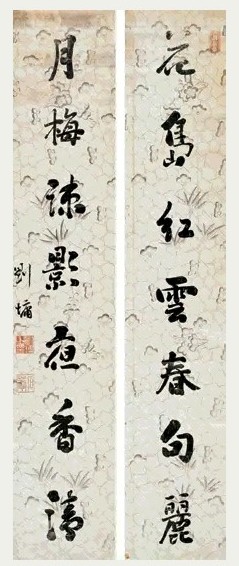 花雋紅雲春句麗
月梅疎影夜香清
劉墉